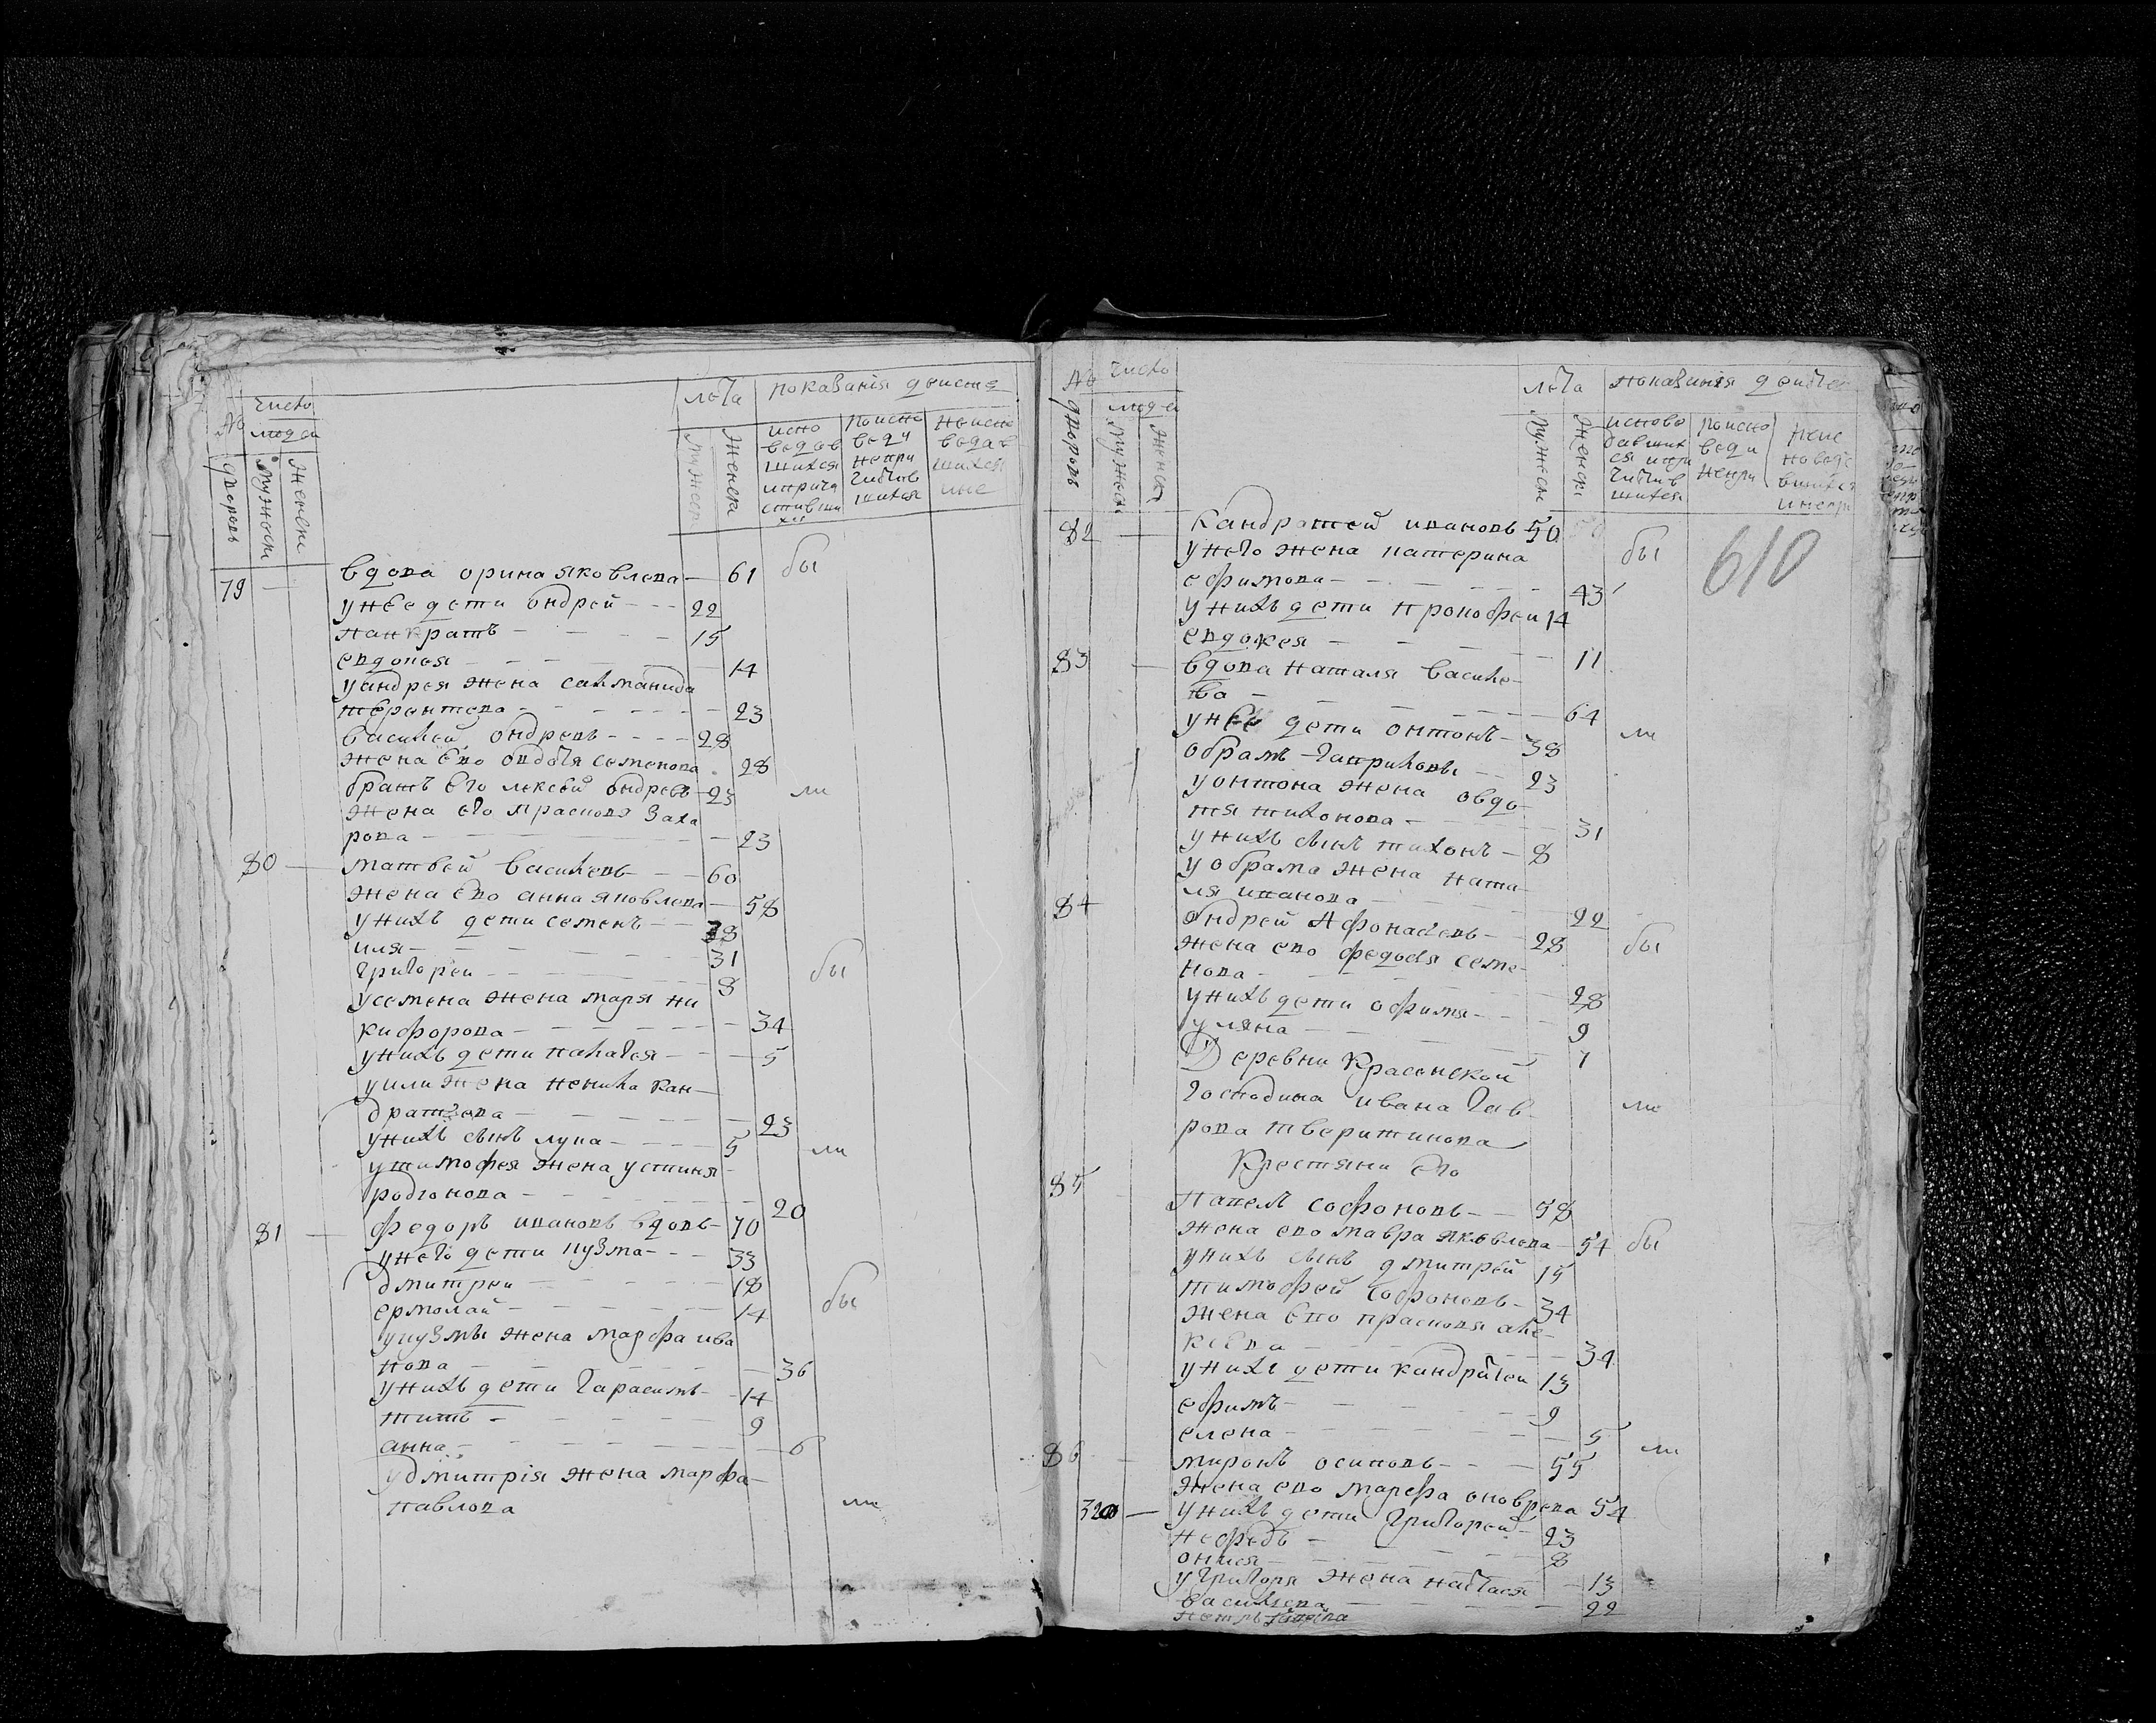 №
число
людеи
лета
показания деисте
дворовъ
мужеск
женски
мужеск
женски
испо
ведав
шихся
иприча
стивши
хся
поиспо
веди
непри
частив
шихся
неиспо
ведав
шихся
ине
79 — вдова орина яковлева — 61 бы
унее дети ондрей — 22
панкратъ — 15
евдокея — 14
уандрея жена салманида
терентева — 23
василей ондревъ — 28
жена ево овдотя семенова 28
братъ его лексей ондревъ 23 ли
жена его прасковя заха
рова — 23
80 — матвей василевъ — 60
жена ево анна яковлева — 58
унихъ дети семенъ — 38
иля — 31
григореи — 8 бы
усемена жена маря ни
кифорова — 34
унихъ дети палагея — 5
уили жена ненила кан
дратева — 23
унихъ сынъ лупа — 5 ли
утимофея жена устиня
родионова — 20
81 — федоръ ивановъ вдовъ 70
унего дети кузма — 33
дмитреи — 18
ермолай — 14 бы
укузмы жена марфа ива
нова — 36
унихъ дети гарасимъ — 14
титъ — 9
анна — 6
удмитрія жена марфа
павлова ли
№
число
людеи
лета
показания деистве
дворовъ
мужеск
женск
мужеск
женски
исповѣ
давших
ся ипри
частив
шихся
поиспо
веди
непри
неис
поведа
вшихся
инепри
610
82 — кандратей ивановъ 50
унего жена катерина бы
ефимова — 43
унихъ дети прокофеи 14
евдокея — 11
83 — вдова наталя василе
ва — 64
унее дети онтонъ — 38 ли
обрамъ гавриловы — 23
уонтона жена овдо
тя тихонова — 31
унихъ сынъ тихонъ — 8
уобрама жена ната
ля иванова — 22
84 ондрей афонасевъ — 28 бы
жена ево федося семе
нова — 28
унихъ дети офимя — 9
уляна — 1
Деревни Красенской
господина ивана гав ли
рова тверитинова
Крестяни его
85 павелъ софоновъ — 58
жена ево мавра яковлева — 54 бы
унихъ сынъ дмитрей 15
тимофей софоновъ — 34
жена ево прасковя але
ксева — 34
унихъ дети кандратеи 13
ефимъ — 9
елена — 5
86 — миронъ осиповъ — 55 ли
жена ево марефа оноврева 54
320 — унихъ дети григорей — 23
нефедъ — 8
онися — 13
угригоря жена настася
василева — 22